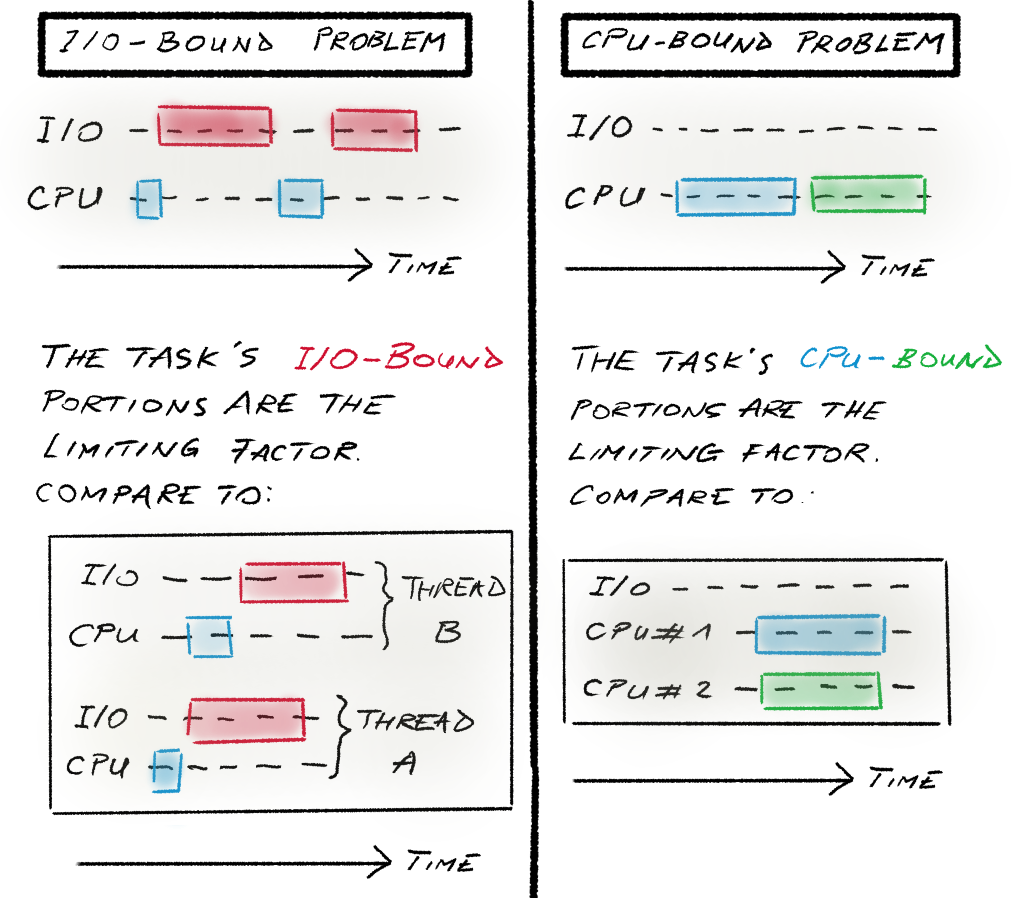 I/O-BOUND PROBLEM
I/O
CPU
TIME
THE TASK'S I/O-BOUND
PORTIONS ARE THE
LIMITING FACTOR.
COMPARE TO:
I/O
CPU
THREAD
B
I/O
CPU
THREAD
A
TIME
CPU-BOUND PROBLEM
I/O
CPU
TIME
THE TASK'S CPU-BOUND
PORTIONS ARE THE
LIMITING FACTOR.
COMPARE TO:
I/O
CPU#1
CPU#2
TIME